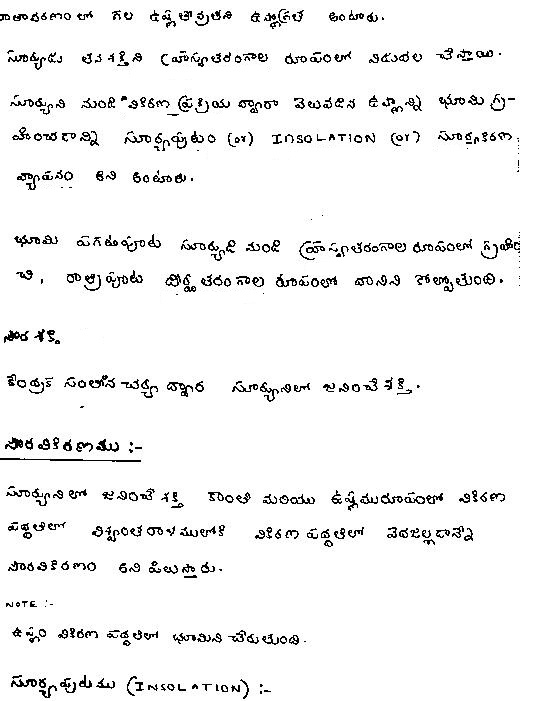 వాతావరణంలో గల ఉష్ణతీవ్రతని ఉష్ణోగ్రత అంటారు.
సూర్యుడు తన శక్తిని హ్రస్వతరంగాల రూపంలో విడుదల చేస్తాయి.
సూర్యుని నుండి వికిరణ ప్రక్రియ ద్వారా వెలువడిన ఉష్ణాన్ని భూమి గ్ర-
హించడాన్ని సూర్యపుటం (or) INSOLATION (or) సూర్యకిరణ
వ్యాపనం అని అంటారు.
భూమి పగటిపూట సూర్యుడి నుండి హ్రస్వతరంగాల రూపంలో గ్రహిం
చి, రాత్రిపూట దీర్ఘ తరంగాల రూపంలో దానిని కోల్పోతుంది.
సౌర శక్తి
కేంద్రక సంలీన చర్య ద్వార సూర్యునిలో జనించే శక్తి.
సౌరవికిరణము :-
సూర్యునిలో జనించే శక్తి కాంతి మరియు ఉష్ణమురూపంలో వికిరణ
పద్ధతిలో విశ్వాంతరాళములోకి వికిరణ పద్ధతిలో వెదజల్లడాన్ని
సౌరవికిరణం అని పిలుస్తారు.
NOTE :-
ఉష్ణం వికిరణ పద్ధతిలో భూమిని చేరుతుంది.
సూర్యపుటము (INSOLATION) :-